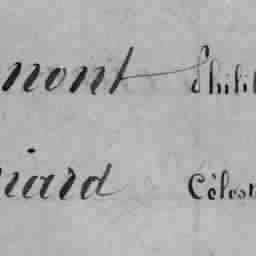 mont Phili
iard Célest